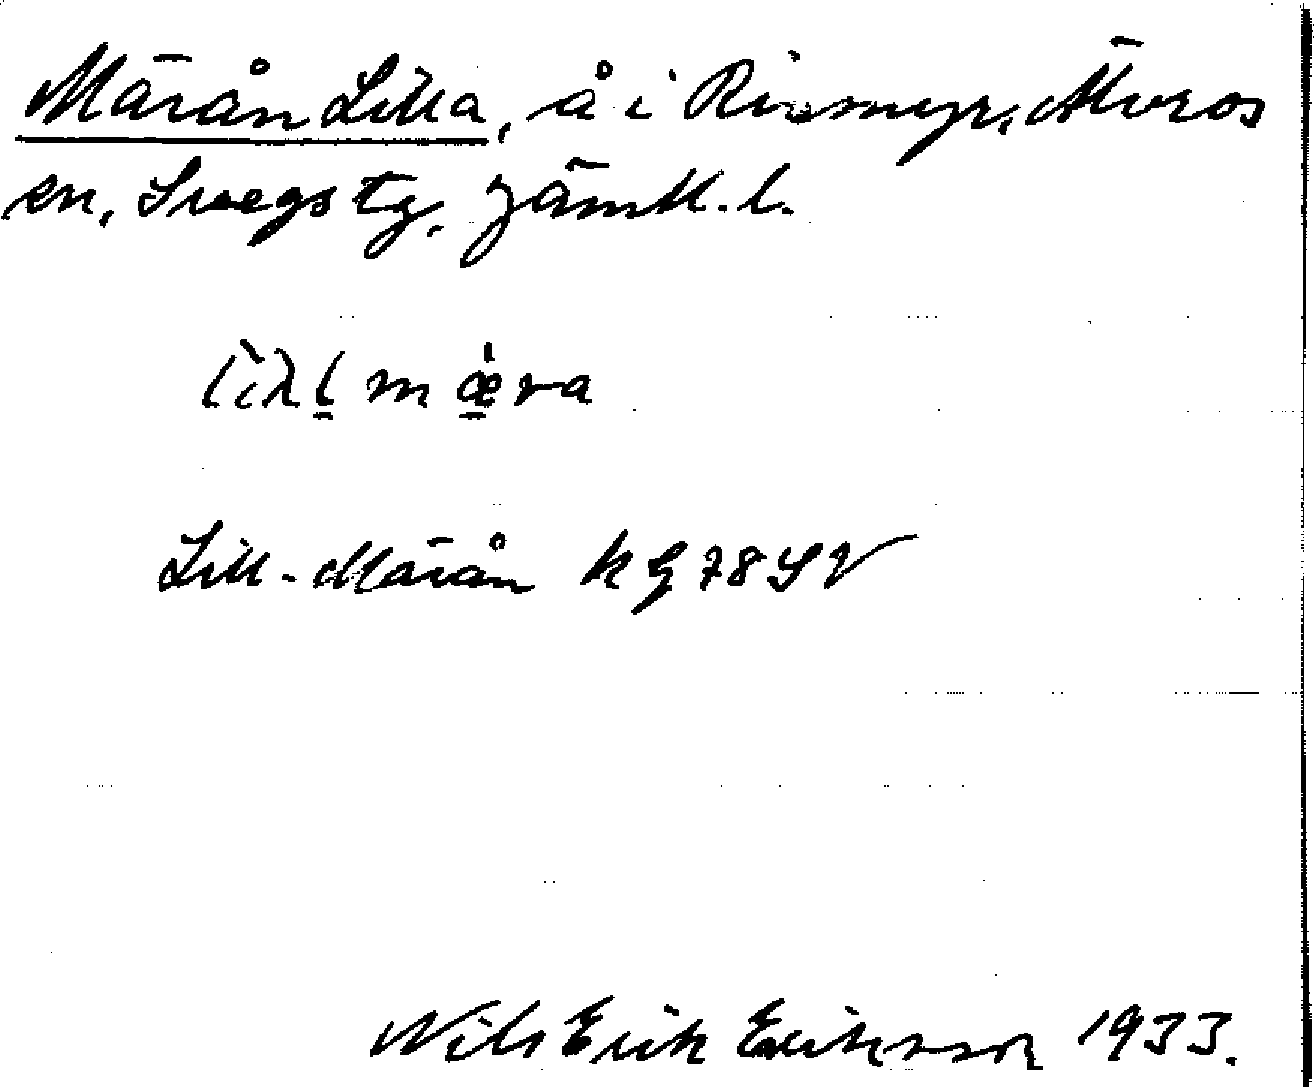 Märån Lilla, å i Rismyr, Älvros
sn, Svegs tg. Jämtl. l.
lìλl mǽra
Lill-Märån kg 78 SV
Nils Erik Eriksson 1933.